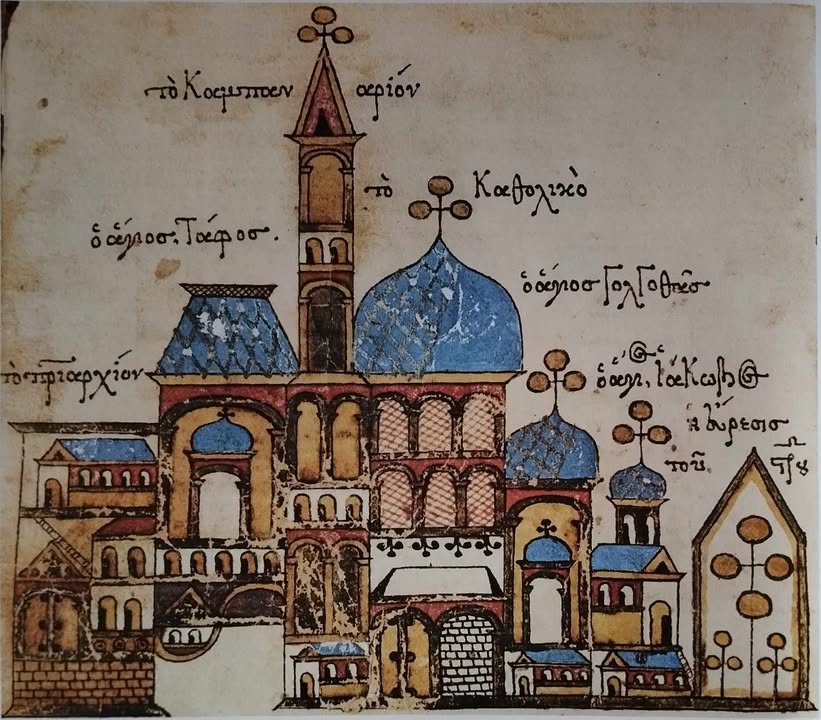 τὸ Καμπαν αριόν
τὸ Καθολικὸ
ὁ ἅγιος Τάφος.
ὁ ἅγιος Γολγοθᾶς
τὸ πριαρχίον
ὁ ἅγι, Ἰάκωβ
ἡ εὕρεσις
τοῦ